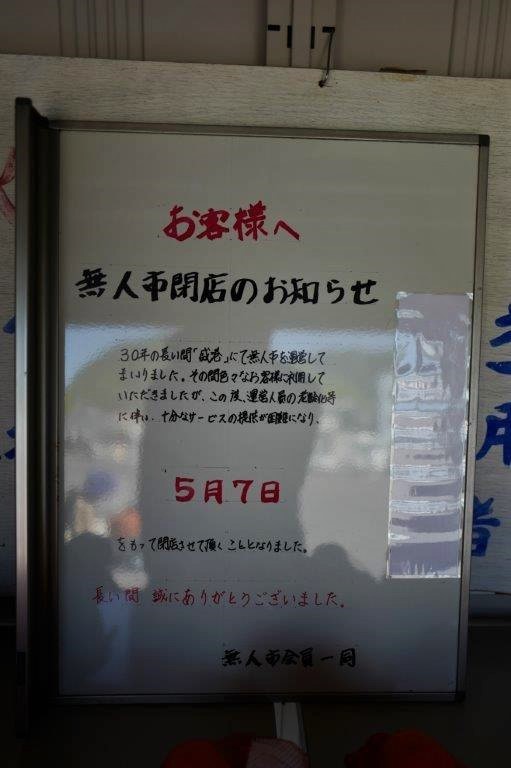 お客様へ
無人市閉店のお知らせ
30年の長い間「戯巻」にて無人市を運営して
まいりました。その間色々なお客様に利用して
いただきましたが、この度、運営人員の老齢化等
に伴い、十分なサービスの提供が困難になり、
5月7日
をもって閉店させて頂くこととなりました。
長い間 誠にありがとうございました。
無人市会員一同